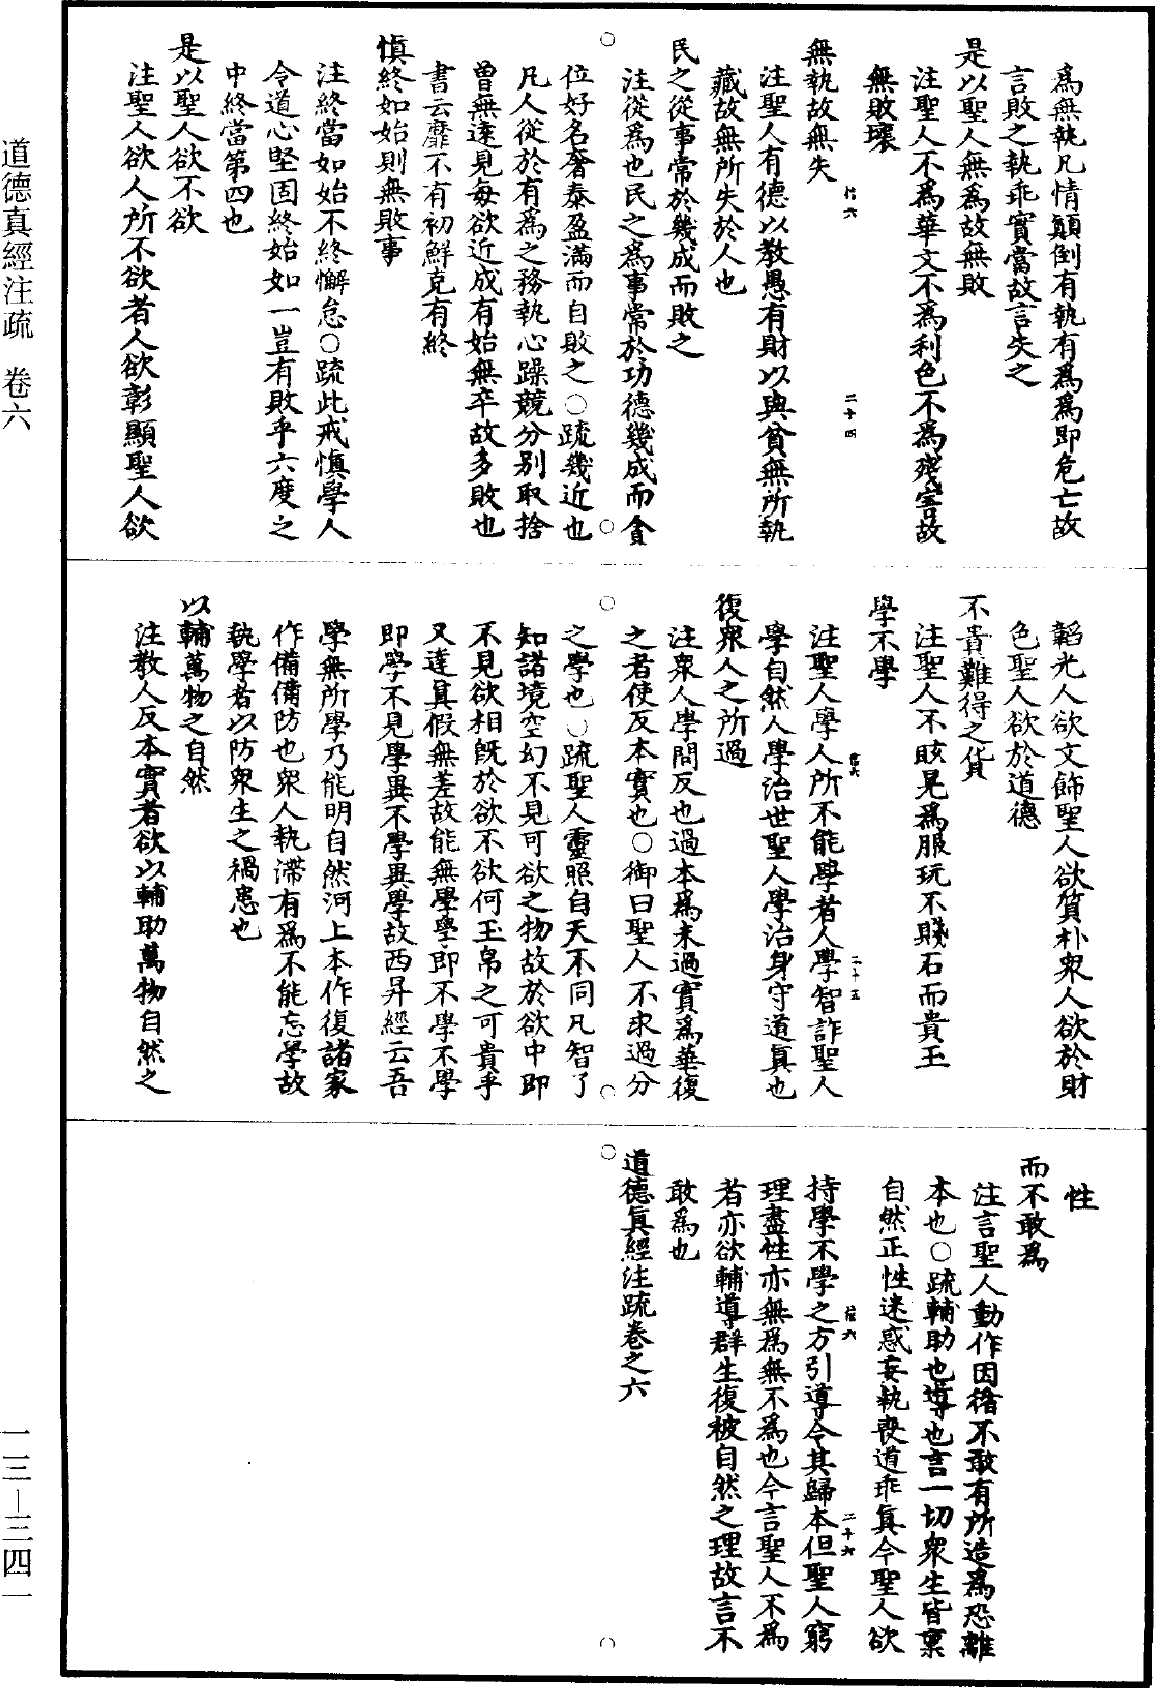 爲無執凡情顛倒有執有爲爲即危亡故
言敗之執乖實當故言失之
是以聖人無爲故無敗
注聖人不爲華文不爲利色不爲殘害故
無敗壞
無執故無失
注聖人有德以教愚有財以與貧無所執
藏故無所失於人也
民之從事常於幾成而敗之
注從爲也民之爲事常於功德幾成而貪
位好名奢泰盈滿而自敗之○疏幾近也
凡人從於有爲之務執心躁競分別取捨
曾無達見每欲近成有始無卒故多敗也
書云靡不有初鮮克有終
慎終如始則無敗事
注終當如始不終懈怠○疏此戒慎學人
令道心堅固終始如一豈有敗乎六度之
中終當第四也
是以聖人欲不欲
注聖人欲人所不欲者人欲彰顯聖人欲
韜光人欲文飾聖人欲質朴衆人欲於財
色聖人欲於道德
不貴難得之貨
注聖人不眩晃爲服玩不賤石而貴玉
學不學
注聖人學人所不能學者人學智詐聖人
學自然人學治世聖人學治身守道真也
復衆人之所過
注衆人學問反也過本爲末過實爲華復
之者使反本實也○御曰聖人不求過分
之學也○疏聖人靈照自天不同凡智了
知諸境空幻不見可欲之物故於欲中即
不見欲相旣於欲不欲何玉帛之可貴乎
又達真假無差故能無學學即不學不學
即學不見學異不學異學故西昇經云吾
學無所學乃能明自然河上本作復諸家
作備備防也衆人執滯有爲不能忘學故
執學者以防衆生之禍患也
以輔萬物之自然
注教人反本實者欲以輔助萬物自然之
性
而不敢爲
注言聖人動作因循不敢有所造爲恐離
本也○疏輔助也導也言一切衆生皆稟
自然正性迷惑妄執喪道乖真今聖人欲
持學不學之方引導令其歸本但聖人窮
理盡性亦無爲無不爲也今言聖人不爲
者亦欲輔導群生復被自然之理故言不
敢爲也
道德真經注疏卷之六
二十四
二十五
二十六
道德真經注疏　卷六
一三－三四一